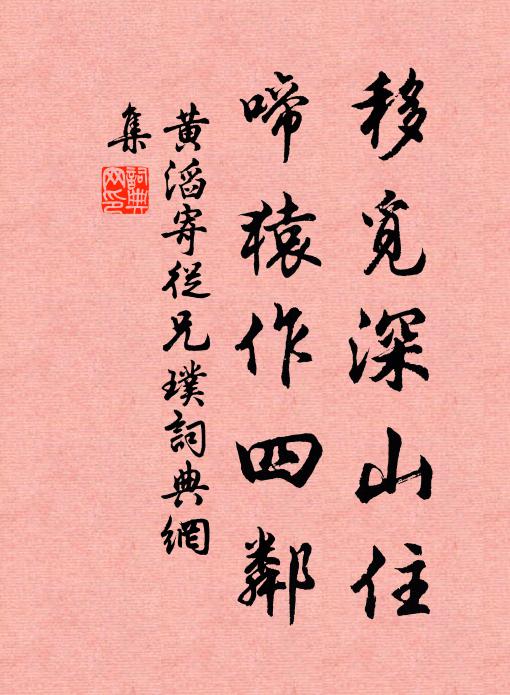 移覓深山住
啼猿作四鄰
黃滔寄從兄璞詞典網
集
詞典網印